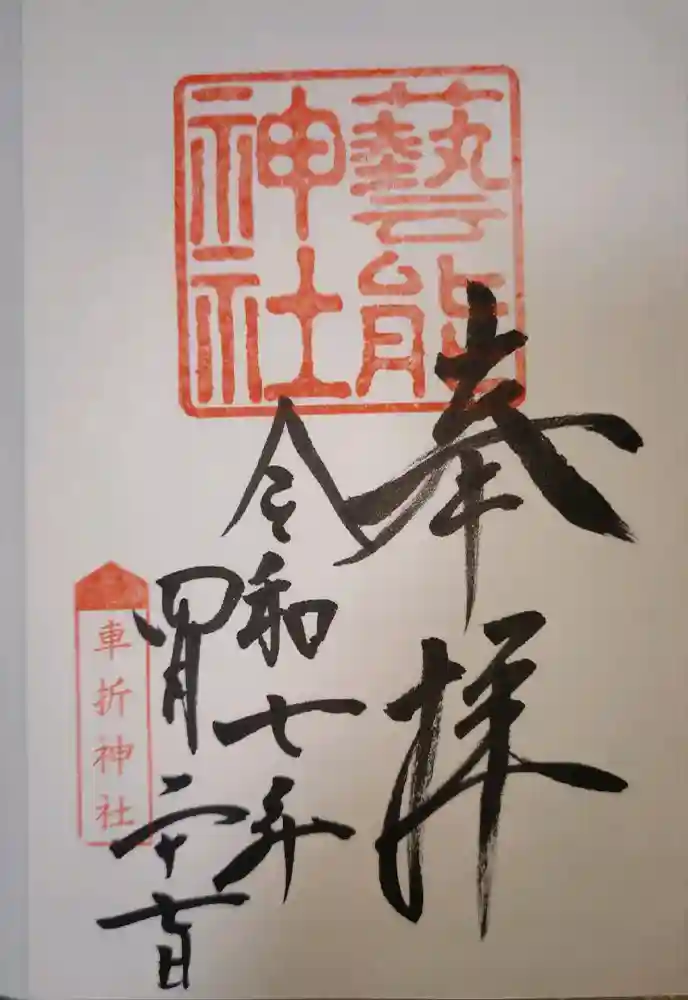 藝能
神社
奉拝
令和七年
四月二十七日
車折神社